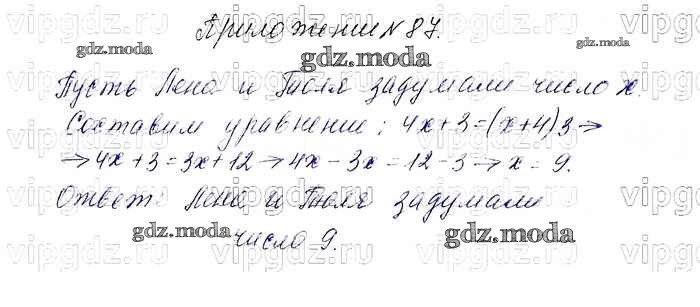 Приложение № 87.
Пусть Лена и Толя задумали число x.
Составим уравнение: 4x+3=(x+4)3→
→4x+3=3x+12→4x-3x=12-3→x=9.
Ответ: Лена и Толя задумали
число 9.
gdz.moda
gdz.moda
gdz.moda
gdz.moda
gdz.moda
vipgdz.com